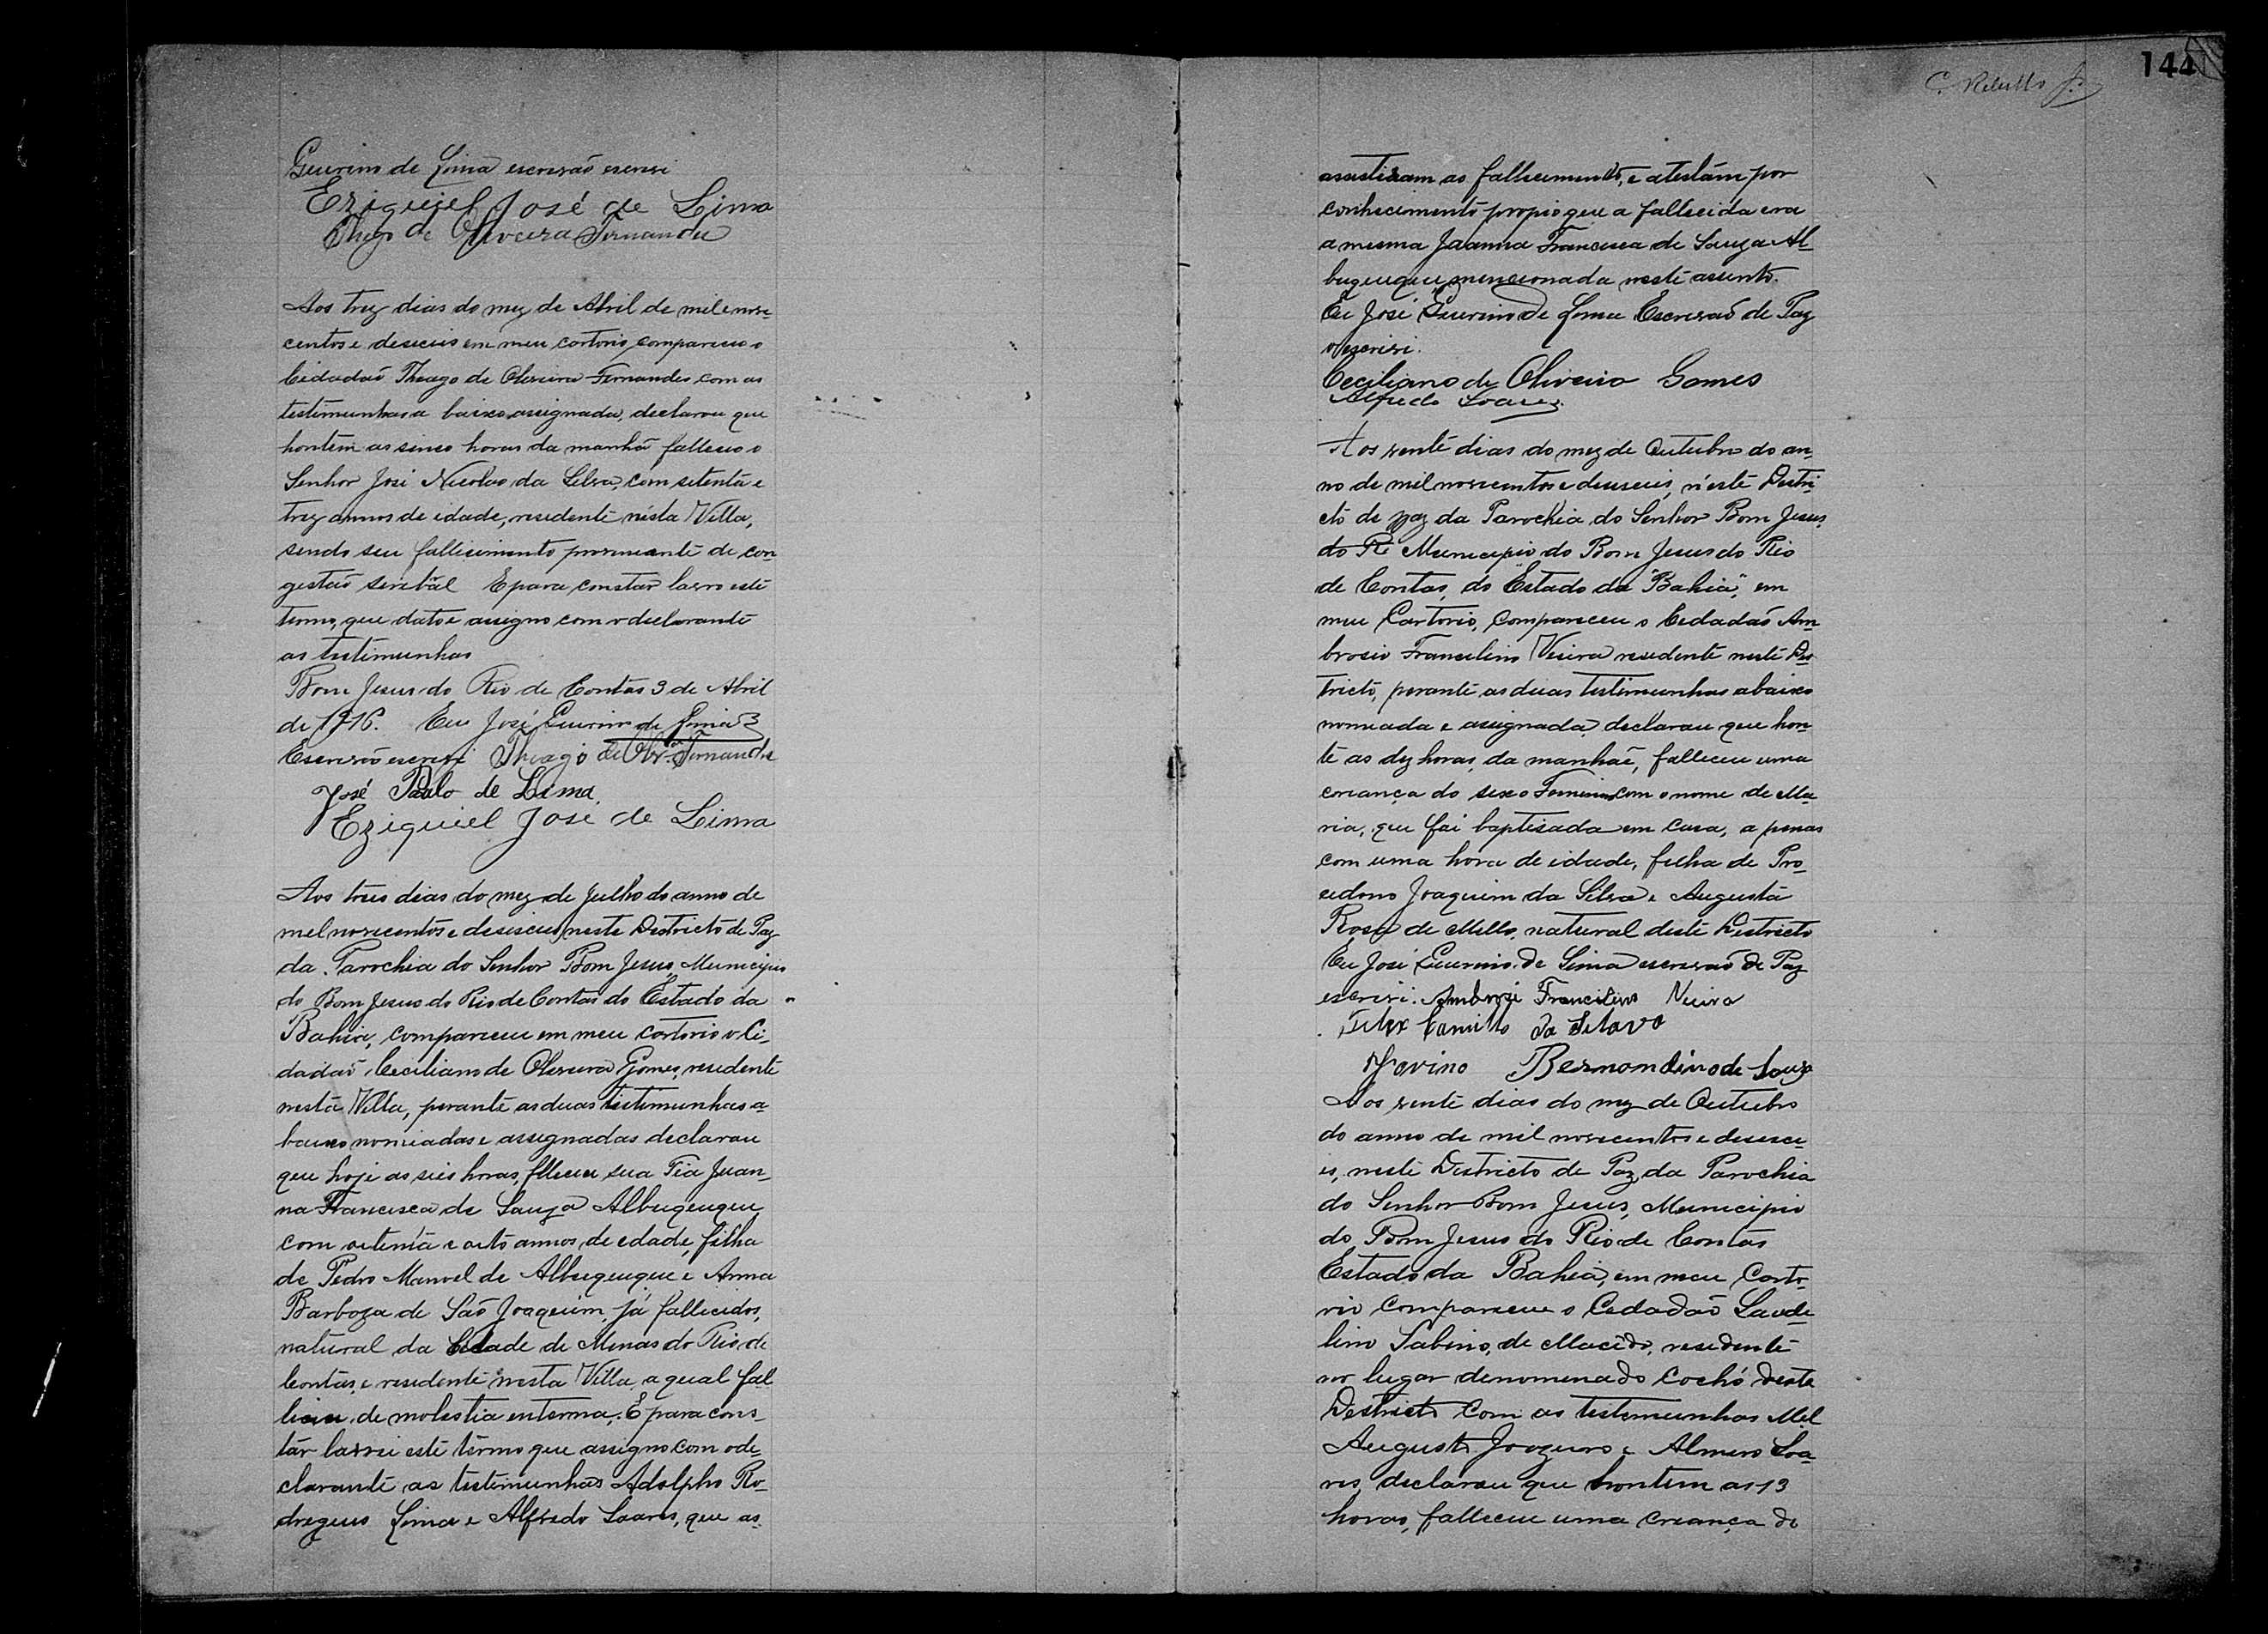 Guerino de Lima escrivão escrevi
Eziquiel José de Lima
Thiago de Oliveira Fernandes
Aos trez dias do mez de Abril de mil e nove-
centos e deseceis em meu cartorio, compareceu o
Cidadaõ Theago de Oliveira Fernandes, com as
testimunhas a baixo assignada, declarou que
hontem as sinco horas da manhã falleceo o
Senhor José Nicolao da Silva, com setenta e
trez annos de idade, residente nésta Villa,
sendo seu fallecimento proveniente de con
gestaõ serebal E para constar lavro este
termo, que dato e assigno com o declarante
as testimunhas
Bom Jesus do Rio de Contas 3 de Abril
de 1916. Eu José Guerino de Lima
Escrivão escrevi Theago de Olivr.ª Fernandes
José Paulo de Lima.
Eziquiel José de Lima
Aos tres dias do mez de Julho do anno de
mel novecentos e deseceis, neste Destricto de Paz
da Parochia do Senhor Bom Jesus, Municipio
do Bom Jesus do Rio de Contas do Estado da
Bahia, compareceu em meu cartorio o Ci-
dadaõ Ceciliano de Oliveira Gomes, residente
nesta Villa, perante as duas testimunhas a-
baixo nomiadas e assignadas declarou
que hoje as seis horas, flleceu sua Tia Juan-
na Francisca de Sauza Albuquerque
com oitenta e oito annos, de edade, filha
de Pedro Manoel de Albuquerque e Anna
Barboza de São Joaquim, já fallecidos,
natural da Cidade de Minas do Rio de
Contas, e residente nesta Villa, a qual fal
liceu, de molestia enterna. E para cons-
tár lavrei este têrmo que assigno com o de-
clarante as testimunhas Adolpho Ro-
drigues Lima e Alfredo Soares, que as-
144
assistiram ao fallecimento, e atestám por
conhecimento propio que a fallecida era
a mesma Joanna Francisca de Sauza Al-
buquerque, mencionada neste assento.
Eu José Guerino de Lima Escrivaõ de Paz
o escrivi.
Ceciliano de Oliveira Gomes
Alfredo Soares.
Aos vente dias do mez de Outubro do an-
no de mil novecentos e deseseis, n'este Destri-
cto de paz da Parochia do Senhor Bom Jesus,
do Ri Municipio do Bom Jesus do Rio
de Contas, do Estado da "Bahia", em
meu Cartorio, compareceu o Cidadaõ Am
brosio Francilino Vieira residente neste Dis
tricto, perante as duas testimunhas abaixo
nomiada e assignada, declarou que hon-
te as dez horas, da manhãe, falleceu uma
criança do sexo Feminino com o nome de Ma-
ria, que foi baptisada em casa, a penas
com uma hora de idade, filha de Pro-
cidono Joaquim da Silva e Augusta
Rosa de Mello, natural deste Destricto
Eu José Guerino de Lima escrivaõ de Paz
escrivi. Ambrozi Francilino Vieira
Felix Camillo da Silava
Jovino Bernondino de Souza
Aos vente dias do mez de Outubro
do anno de mil novecentos e desesce-
is, neste Districto de Paz, da Parochia
do Senhor Bom Jesus, Municipio
do Bom Jesus do Rio de Contas
Estado da Bahia, em meu Carto-
rio compareceu o Cedadão Laude-
lino Sabino, de Macêdo, residente
no lugar denomenado Cochó deste
Destricto com as testemunhas Mel
Augusto Joazeiro e Almiro Soa-
res, declarou que hontem as 13
horas, falleceu uma criança do